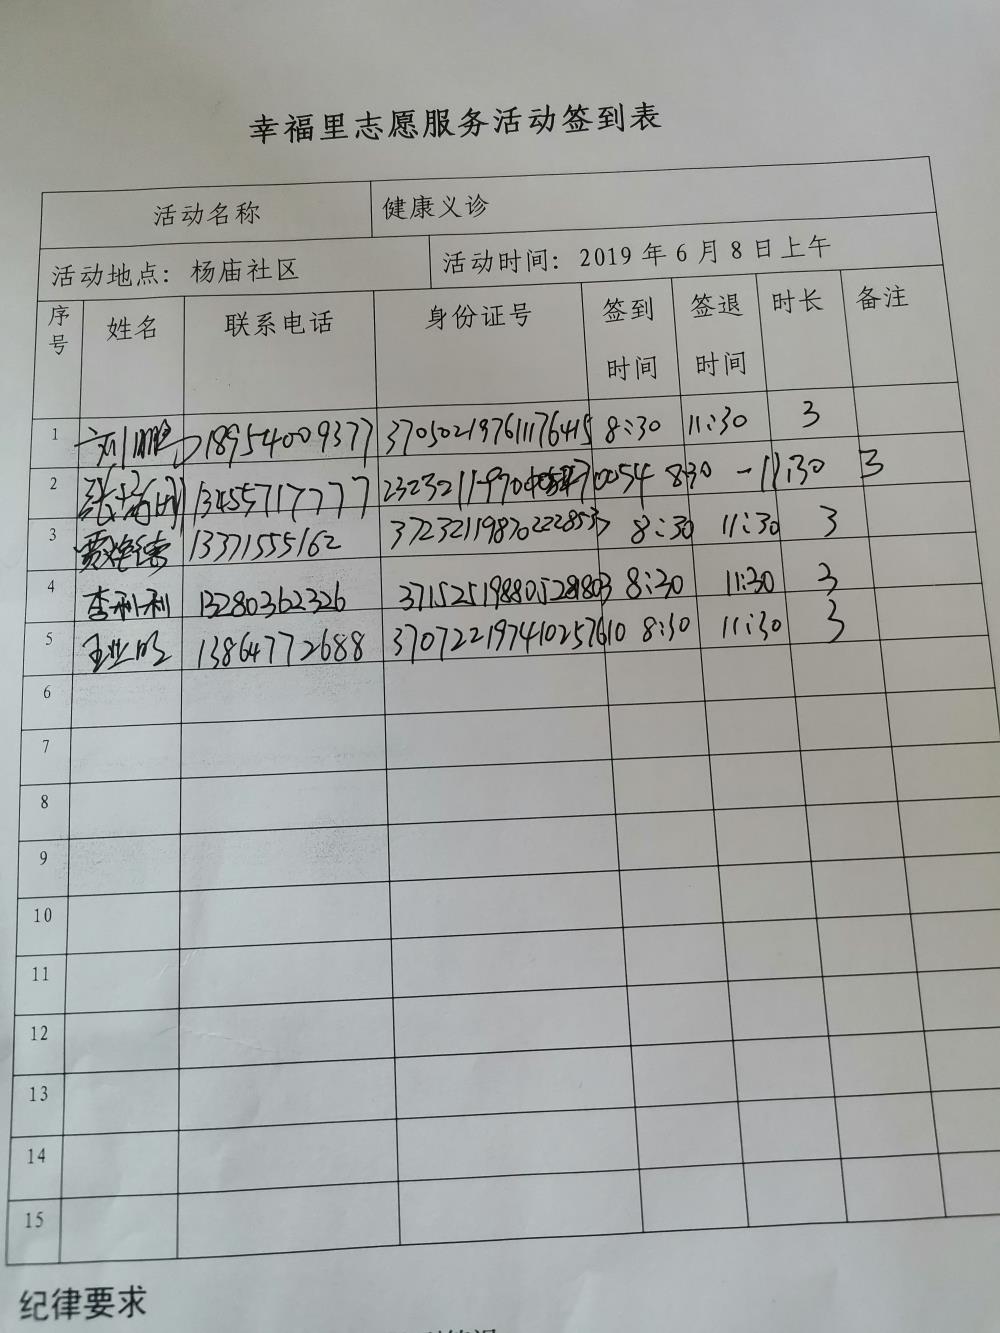 幸福里志愿服务活动签到表
活动名称 健康义诊
活动地点：杨庙社区 活动时间：2019年6月8日上午
序号 姓名 联系电话 身份证号 签到时间 签退时间 时长 备注
1 刘鹏 18954009377 370502197611176415 8:30 11:30 3
2 13455717777 8:30 -11:30 3
3 13371555162 372321198702228537 8:30 11:30 3
4 李利利 13280362326 371525198805281803 8:30 11:30 3
5 13864772688 370722197410257610 8:30 11:30 3
6
7
8
9
10
11
12
13
14
15
纪律要求